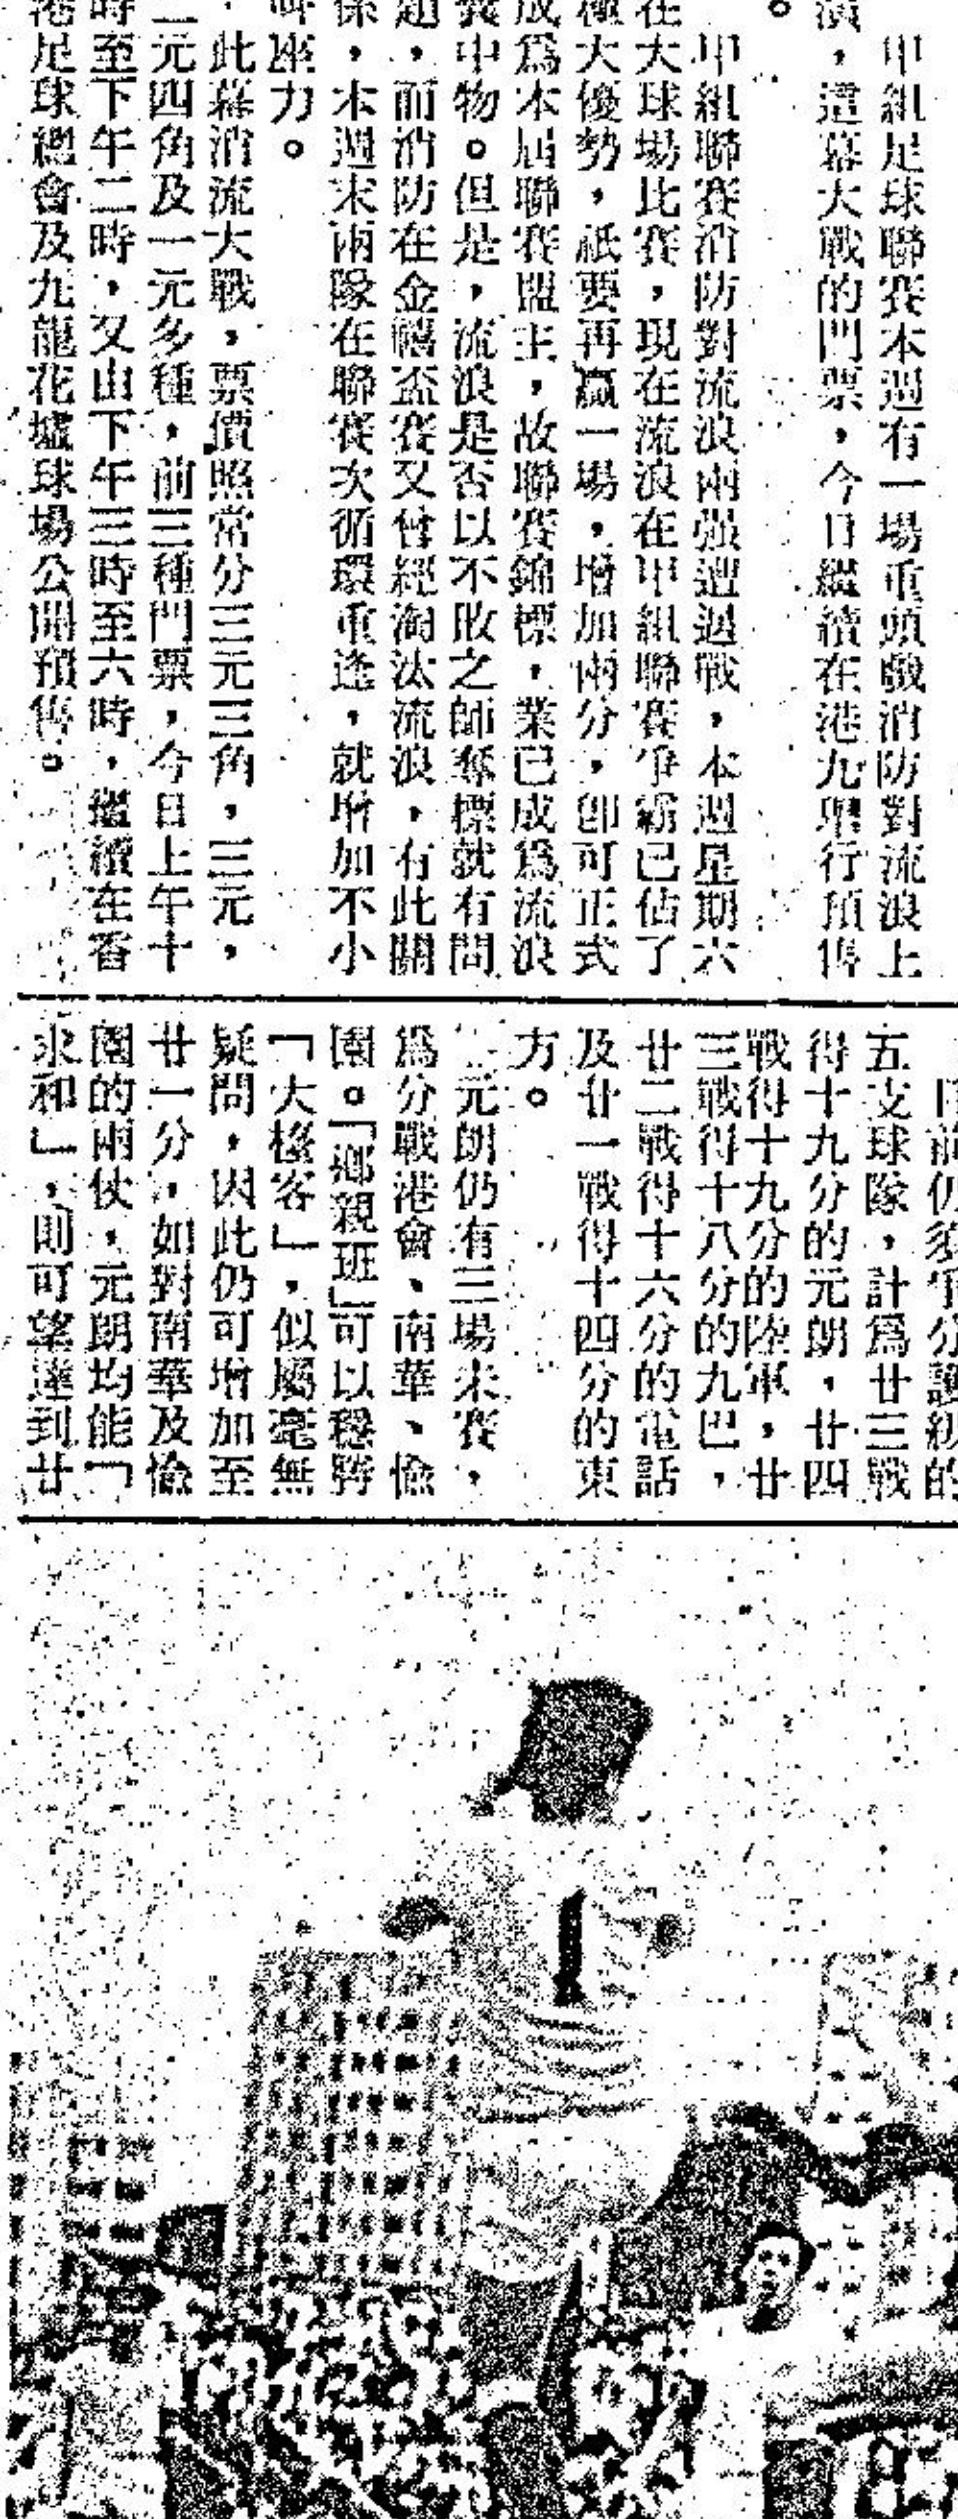 甲組足球聯賽本週有一場重頭戲消防對流浪上
演，這幕大戰的門票，今日繼續在港九舉行預售
。
甲組聯賽消防對流浪兩强遭遇戰，本週星期六
在大球場比賽，現在流浪在甲組聯賽爭霸已佔了
極大優勢，祇要再贏一場，增加兩分，即可正式
成爲本届聯賽盟主，故聯賽錦標，業已成爲流浪
囊中物。但是，流浪是否以不敗之師奪標就有問
題，而消防在金禧盃賽又曾經淘汰流浪，有此關
係，本週末兩隊在聯賽次循環重逢，就增加不小
叫座力。
，此幕消流大戰，票價照常分三元三角，三元，
二元四角及一元多種，前三種門票，今日上午十
時至下午二時，又由下午三時至六時，繼續在香
港足球總會及九龍花墟球場公開預售。
目前仍須爭分護級的
五支球隊，計爲廿三戰
得十九分的元朗，廿四
戰得十九分的陸軍，廿
三戰得十八分的九巴，
廿二戰得十六分的電話
及廿一戰得十四分的東
方。
元朗仍有三場未賽，
爲分戰港會、南華、愉
園。「鄉親班」可以穩勝
「大椂客」，似屬毫無
疑問，因此仍可增加至
廿一分，如對南華及愉
園的兩仗，元朗均能「
求和」，則可望達到廿